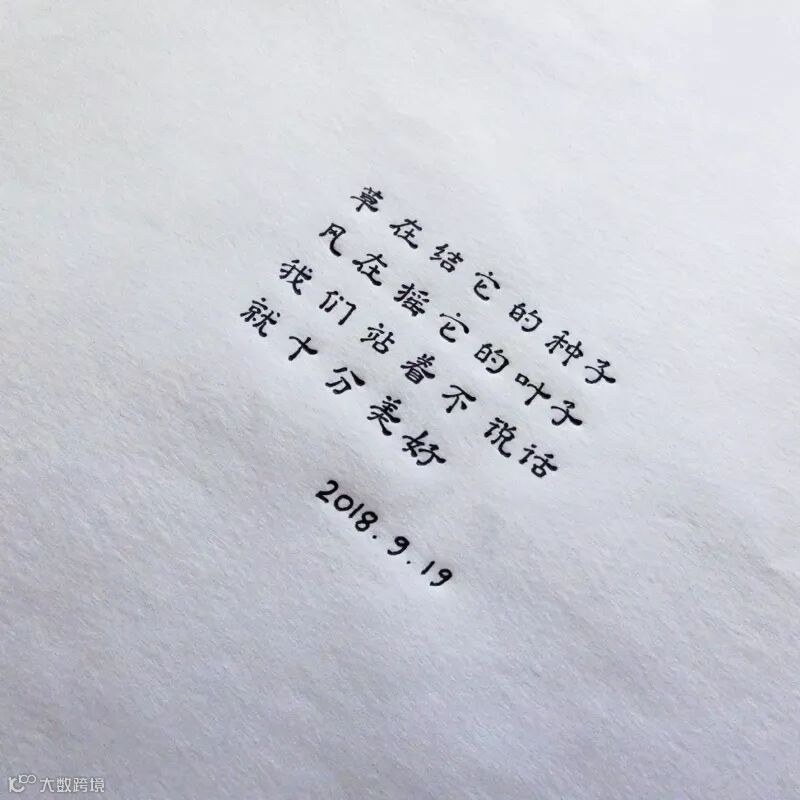 草在结它的种子
风在摇它的叶子
我们站着不说话
就十分美好
2018.9.19
大数跨境